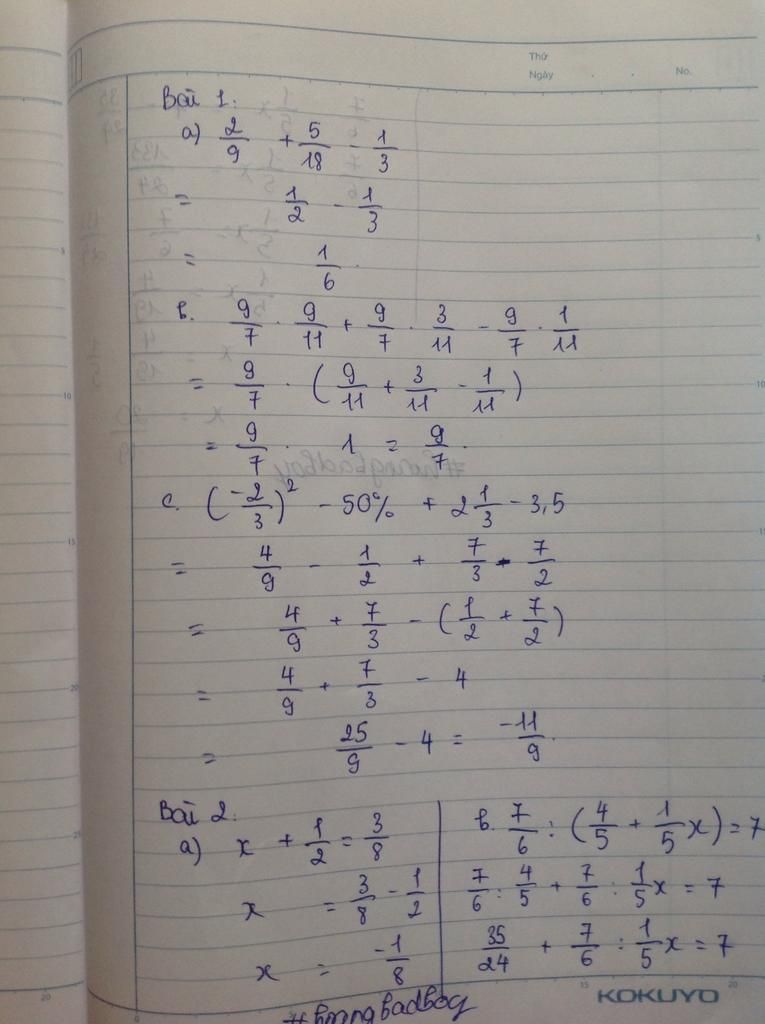 Thứ
Ngày . . No.
Bài 1:
a) 2/9 + 5/18 - 1/3
= 1/2 - 1/3
= 1/6.
b. 9/7 . 9/11 + 9/7 . 3/11 - 9/7 . 1/11
= 9/7 . (9/11 + 3/11 - 1/11)
= 9/7 . 1 = 9/7.
c. (-2/3)² - 50% + 2 1/3 - 3,5
= 4/9 - 1/2 + 7/3 - 7/2
= 4/9 + 7/3 - (1/2 + 7/2)
= 4/9 + 7/3 - 4
= 25/9 - 4 = -11/9.
Bài 2.
a) x + 1/2 = 3/8
x = 3/8 - 1/2
x = -1/8
b. 7/6 : (4/5 + 1/5 x) = 7
7/6 : 4/5 + 7/6 : 1/5 x = 7
35/24 + 7/6 : 1/5 x = 7
#hoangbadboy
KOKUYO